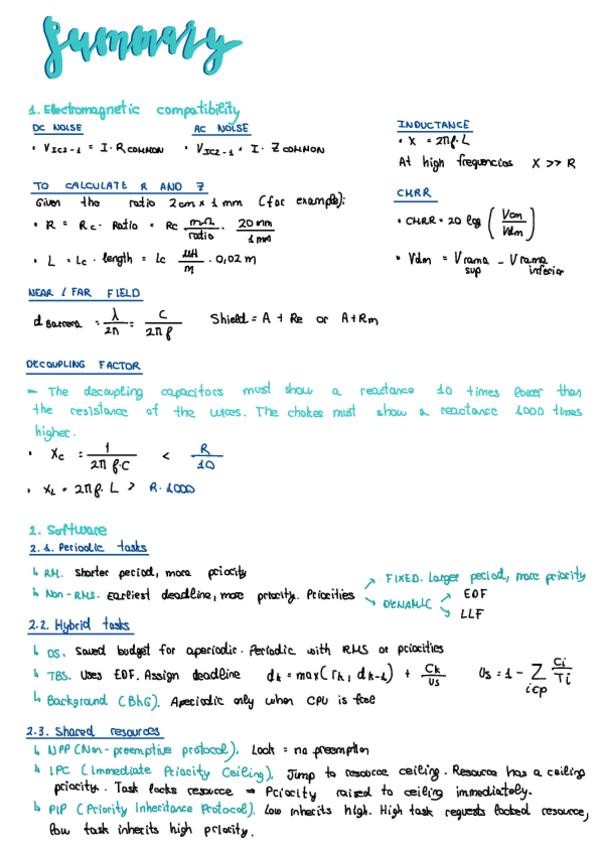 Summary
1. Electromagnetic compatibility
DC NOISE
• V_IC2-1 = I · R_COMMON
AC NOISE
• V_IC2-1 = I · Z_COMMON
INDUCTANCE
• X = 2πf·L
At high frequencies X >> R
TO CALCULATE R AND Z
Given the ratio 20m x 1 mm (for example):
• R = Rc · Ratio = Rc mΩ/ratio · 20 mm/1 mm
• L = Lc · length = Lc μH/m · 0,02 m
CMRR
• CMRR = 20 log (Vcm/Vdm)
• Vdm = V rama sup - V rama inferior
NEAR / FAR FIELD
d Barrera = λ/2π = C/2πf Shield = A + Re or A+Rm
DECOUPLING FACTOR
- The decoupling capacitors must show a reactance 10 times lower than
the resistance of the wires. The chokes must show a reactance 1000 times
higher.
• Xc = 1/2πf·C < R/10
• XL = 2πf·L > R·1000
2. Software
2.1. Periodic tasks
↳ RM. Shorter period, more priority
↳ Non-RMS. Earliest deadline, more priority. Priorities
↗ FIXED. Larger period, more priority
↘ DYNAMIC
↗ EDF
↘ LLF
2.2. Hybrid tasks
↳ DS. Saved budget for aperiodic. Periodic with RMS or priorities
↳ TBS. Uses EDF. Assign deadline dk = max(rk, dk-1) + Ck/Us Us = 1 - Σ icp Ci/Ti
↳ Background (BKG). Aperiodic only when CPU is free
2.3. Shared resources
↳ NPP (Non-preemptive protocol). Lock = no preemption
↳ IPC (Immediate Priority Ceiling). Jump to resource ceiling. Resource has a ceiling
priority. Task locks resource → Priority raised to ceiling immediately.
↳ PIP (Priority Inheritance Protocol). Low inherits high. High task requests locked resource,
low task inherits high priority.